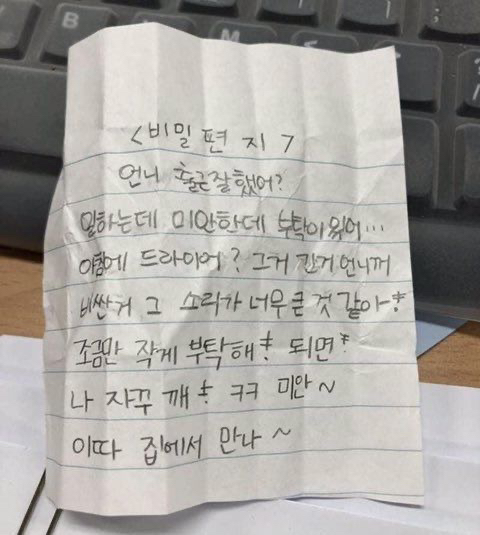 <비밀 편지>
언니 출근잘했어?
일하는데 미안한데 부탁이 있어...
아침에 드라이어? 그거 긴거 언니꺼
비싼거 그 소리가 너무 큰 것 같아ㅎ
조금만 작게 부탁해ㅎ 되면ㅎ
나 자꾸 깨ㅎ ㅋㅋ 미안~
이따 집에서 만나~